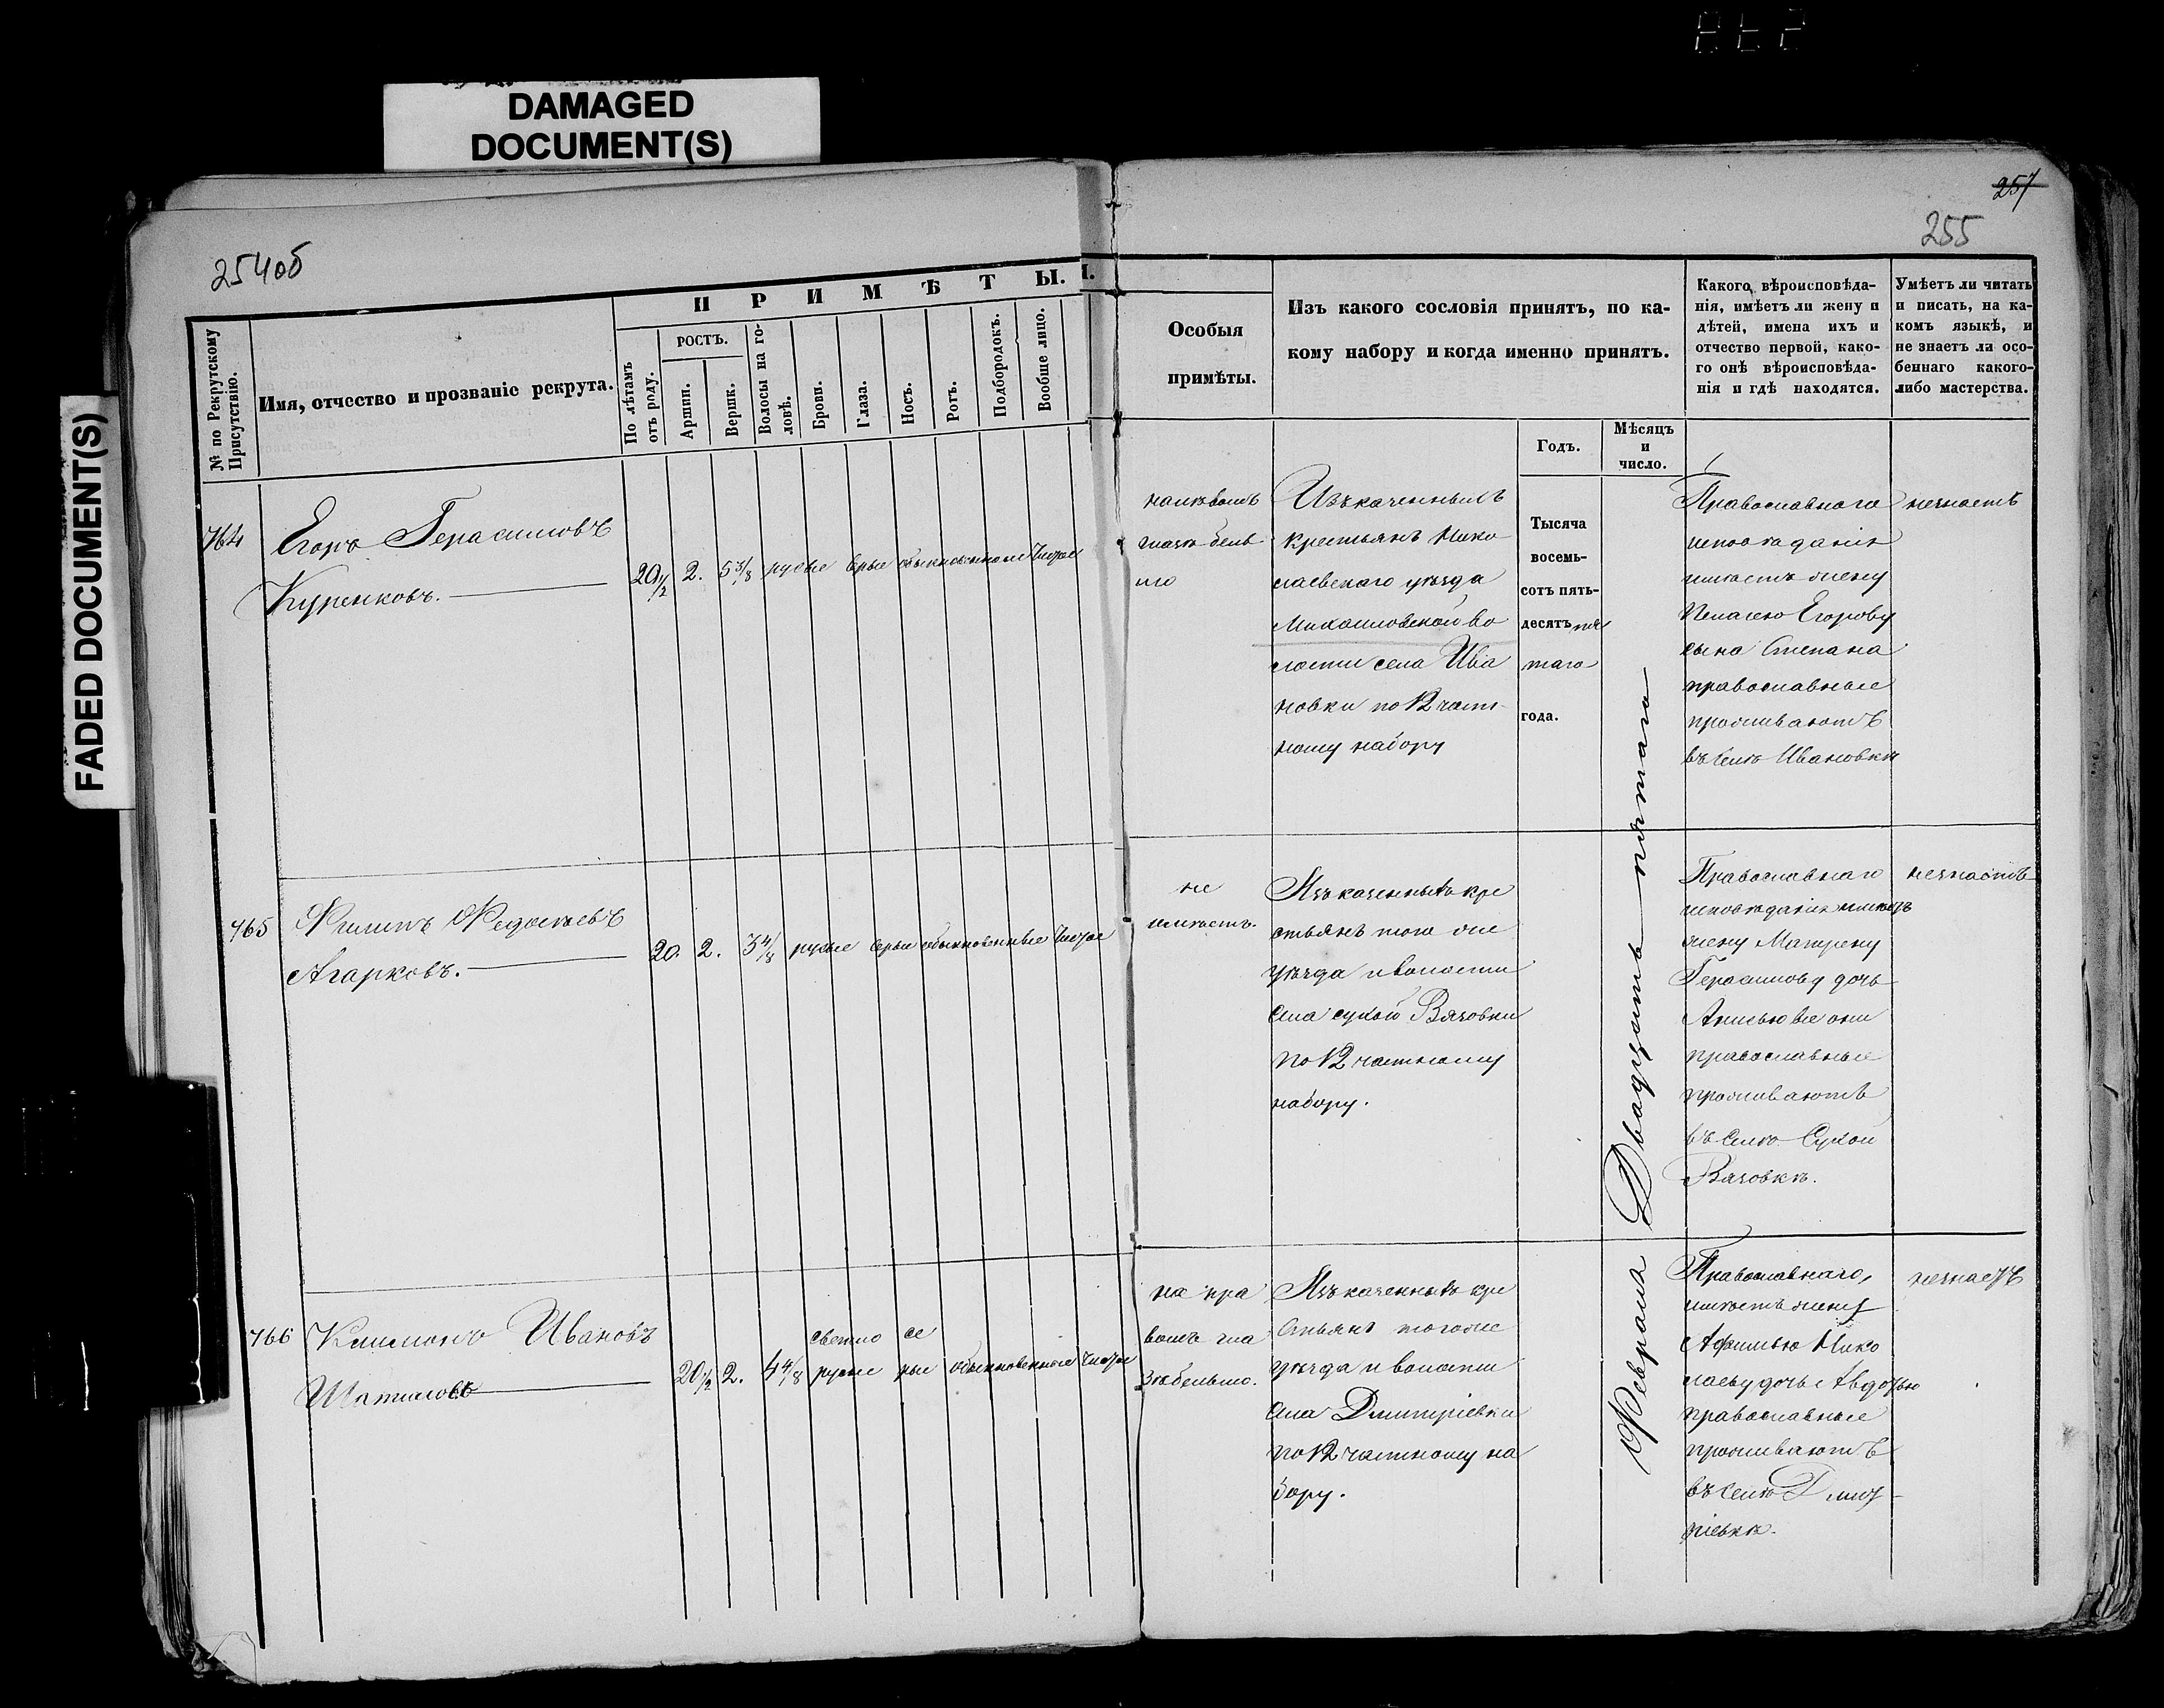 DAMAGED
DOCUMENT(S)
FADED DOCUMENT(S)
254об
257
255
№ по Рекрутскому
Присутствію.
Имя, отчество и прозваніе рекрута.
ПРИМѢТЫ.
По лѣтамъ
отъ роду.
РОСТЪ.
Аршин.
Вершк.
Волосы на го-
ловѣ.
Брови.
Глаза.
Носъ.
Ротъ.
Подбородокъ.
Вообще лицо.
Особыя
примѣты.
Изъ какого сословія принятъ, по ка-
кому набору и когда именно принятъ.
Годъ.
Мѣсяцъ
и
число.
Какого вѣроисповѣда-
нія, имѣетъ ли жену и
дѣтей, имена ихъ и
отчество первой, како-
го онѣ вѣроисповѣда-
нія и гдѣ находятся.
Умѣетъ ли читать
и писать, на ка-
комъ языкѣ, и
не знаетъ ли осо-
беннаго какого-
либо мастерства.
764
Егоръ Герасимовъ
Куренковъ.
20 1/2 2. 5 3/8 русые серые обыкновенные чистое
на лѣвомъ
глазѣ бель
мо
Изъ казенныхъ
крестьянъ Нико
лаевскаго уѣзда
Михаиловской во
лости села Ива
новки по 12 част
ному набору
Тысяча
восемь-
сотъ пять-
десятъ пя
таго
года.
Февраля Двадцать пятаго
Православнаго
исповѣданія
имѣетъ жену
Пелагею Егорову
сына Степана
православные
проживаютъ
въ селѣ Ивановки
незнаетъ
765
Филипъ Федосѣевъ
Агарковъ.
20. 2. 3 4/8 русые серые обыкновенные чистое
не
имѣетъ.
Изъ казенныхъ кре
стьянъ того же
уѣзда и волости
села сухой Вязовки
по 12 частному
набору.
Православнаго
исповѣданія имѣетъ
жену Матрену
Герасимову дочь
Анисью все они
православные
проживаютъ
въ селѣ Сухой
Вязовкѣ.
незнаетъ
766
Климонъ Ивановъ
Шатиловъ
20 1/2 2. 4 4/8
светло се
русые рые обыкновенные чистое
на пра
вомъ гла
зѣ бельмо.
Изъ казенныхъ кре
стьянъ тогоже
уѣзда и волости
села Дмитріевки
по 12 частному на
бору.
Православнаго,
имѣетъ жену
Афимью Нико
лаеву дочь Авдотью
православные
проживаютъ
въ селѣ Дмит
ріевкѣ.
незнаетъ